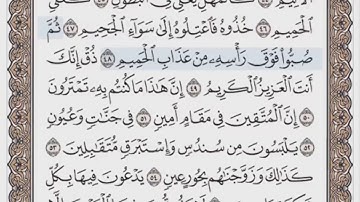 كَغَلْيِ
ٱلْحَمِيمِ ٤٦ خُذُوهُ فَٱعْتِلُوهُ إِلَىٰ سَوَآءِ ٱلْجَحِيمِ ٤٧ ثُمَّ
صُبُّوا۟ فَوْقَ رَأْسِهِۦ مِنْ عَذَابِ ٱلْحَمِيمِ ٤٨ ذُقْ إِنَّكَ
أَنتَ ٱلْعَزِيزُ ٱلْكَرِيمُ ٤٩ إِنَّ هَٰذَا مَا كُنتُم بِهِۦ تَمْتَرُونَ
٥٠ إِنَّ ٱلْمُتَّقِينَ فِى مَقَامٍ أَمِينٍ ٥١ فِى جَنَّٰتٍ وَعُيُونٍ
٥٢ يَلْبَسُونَ مِن سُندُسٍ وَإِسْتَبْرَقٍ مُّتَقَٰبِلِينَ ٥٣
كَذَٰلِكَ وَزَوَّجْنَٰهُم بِحُورٍ عِينٍ ٥٤ يَدْعُونَ فِيهَا بِكُلِّ